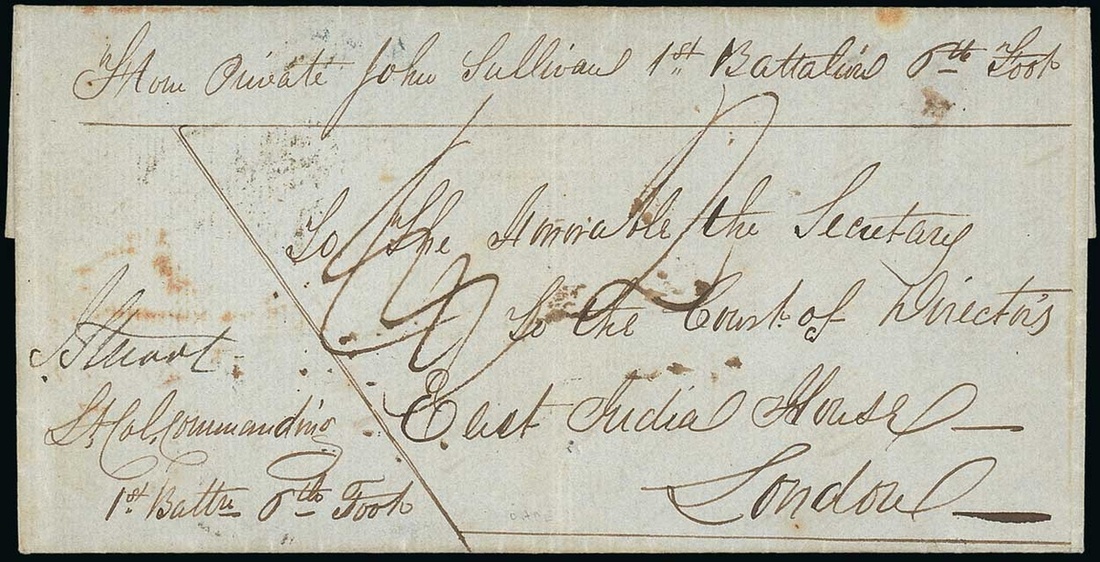 From Private John Sullivan 1st Battalion 6th Foot
To The Honorable the Secretary
To the Court of Directors
East India House
London
Stuart
Lt. Col. Commanding
1st Battn 6th Foot